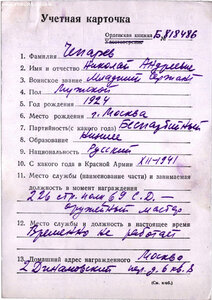 Учетная карточка
Орденская книжка Б № 818486
1. Фамилия Чепарев
2. Имя и отчество Николай Андреевич
3. Воинское звание Младший сержант
4. Пол Мужской
5. Год рождения 1924
6. Место рождения г. Москва
7. Партийность (с какого года) Беспартийный
8. Образование Низшее
9. Национальность Русский
10. С какого года в Красной Армии XII-1941
11. Место службы (наименование части) и занимаемая
должность в момент награждения
226 стр. полк 69 С.Д. –
оружейный мастер
12. Место службы и должность в настоящее время
Временно не работает
13. Домашний адрес награжденного Москва
2 пер. д. 6 кв. 8
(См. на об.)